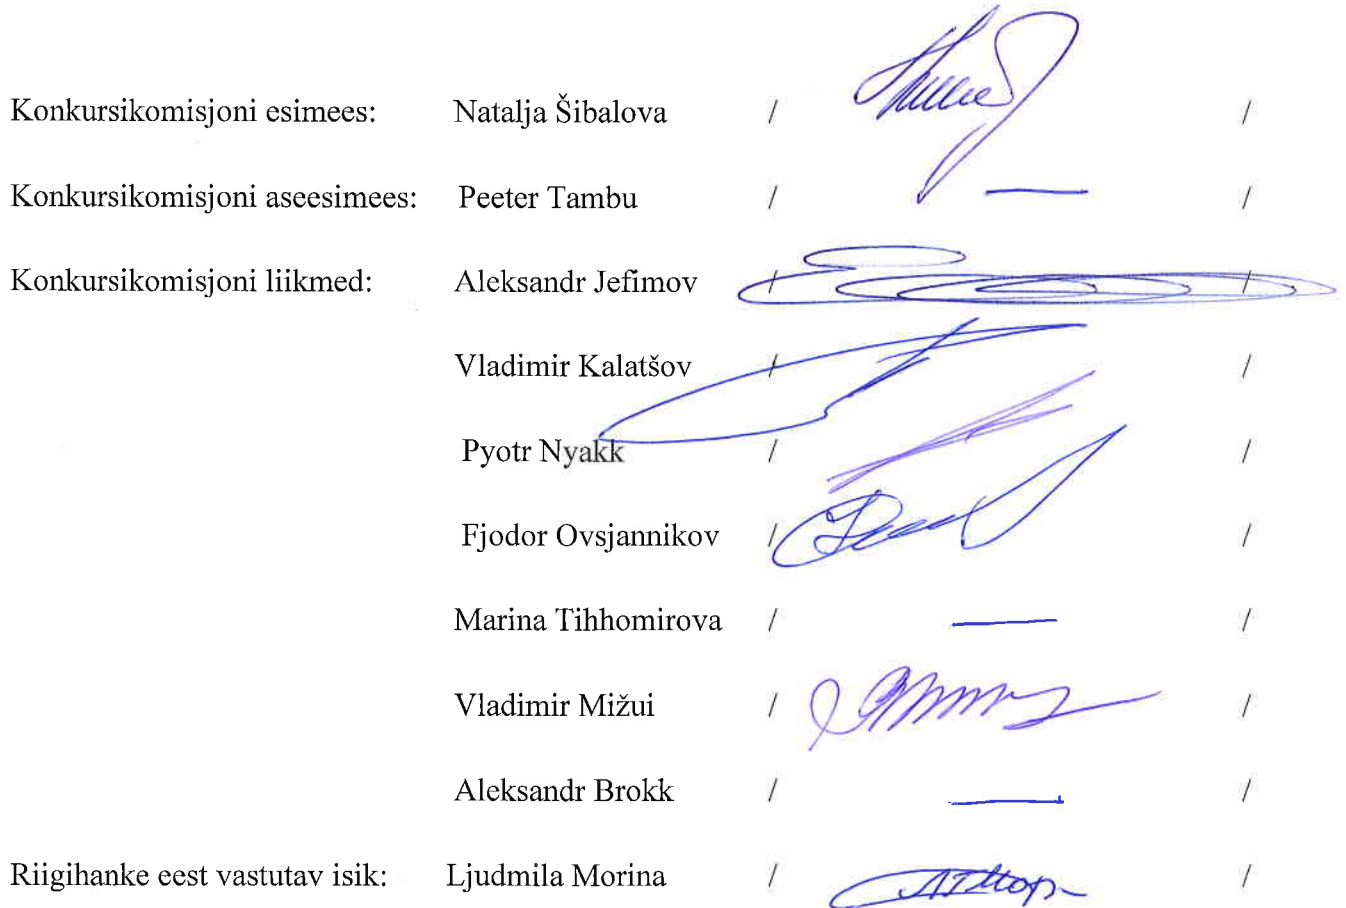 Konkursikomisjoni esimees: Natalja Šibalova / /
Konkursikomisjoni aseesimees: Peeter Tambu / — /
Konkursikomisjoni liikmed: Aleksandr Jefimov / /
Vladimir Kalatšov / /
Pyotr Nyakk / /
Fjodor Ovsjannikov / /
Marina Tihhomirova / — /
Vladimir Mižui / /
Aleksandr Brokk / — /
Riigihanke eest vastutav isik: Ljudmila Morina / /